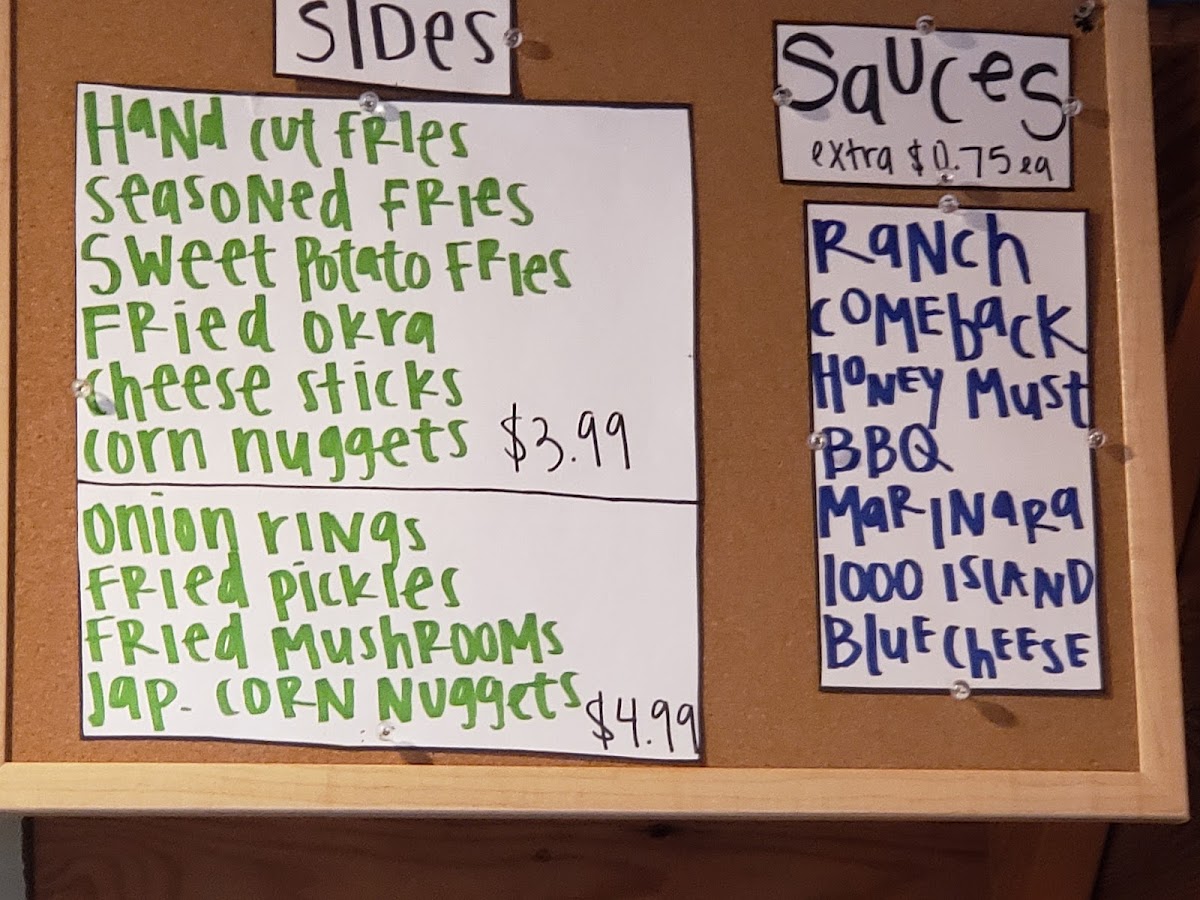 SIDes
HaNd cut fRIes
SeasoNed FRIes
Sweet Potato FRIes
FRied okra
cheese sticks
corn nuggets $3.99
onion rINgs
FRIed pickles
FRIed MushROOMs
Jap. CORN Nuggets $4.99
Sauces
extra $0.75 ea
RaNch
COMEback
HONEY Must
BBQ
MaRINaRa
1000 ISlAND
BluE ChEESE